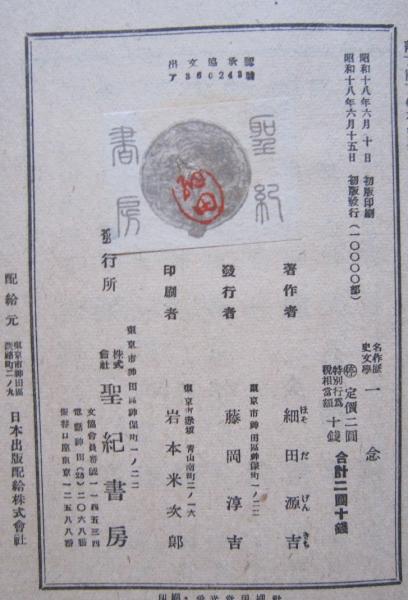 出文協承認
ア360243號
聖紀
書房
細田
昭和十八年六月十日　初版印刷
昭和十八年六月十五日　初版發行（一〇〇〇〇部）
名作歷史文學　一念
㊞定價二圓
特別行爲税相當額　十錢
合計二圓十錢
著作者　細田源吉
ほそだ　げんきち
東京市神田區神保町一ノ二二
發行者　藤岡淳吉
東京市赤坂區青山南町二ノ一六
印刷者　岩本米次郎
東京市神田區神保町一ノ二二
發行所　株式會社　聖紀書房
文協會員番號一一四五三四
電話神田(25)二〇六八番
振替口座東京一二五八八番
配給元　東京市神田區淡路町二ノ九　日本出版配給株式會社